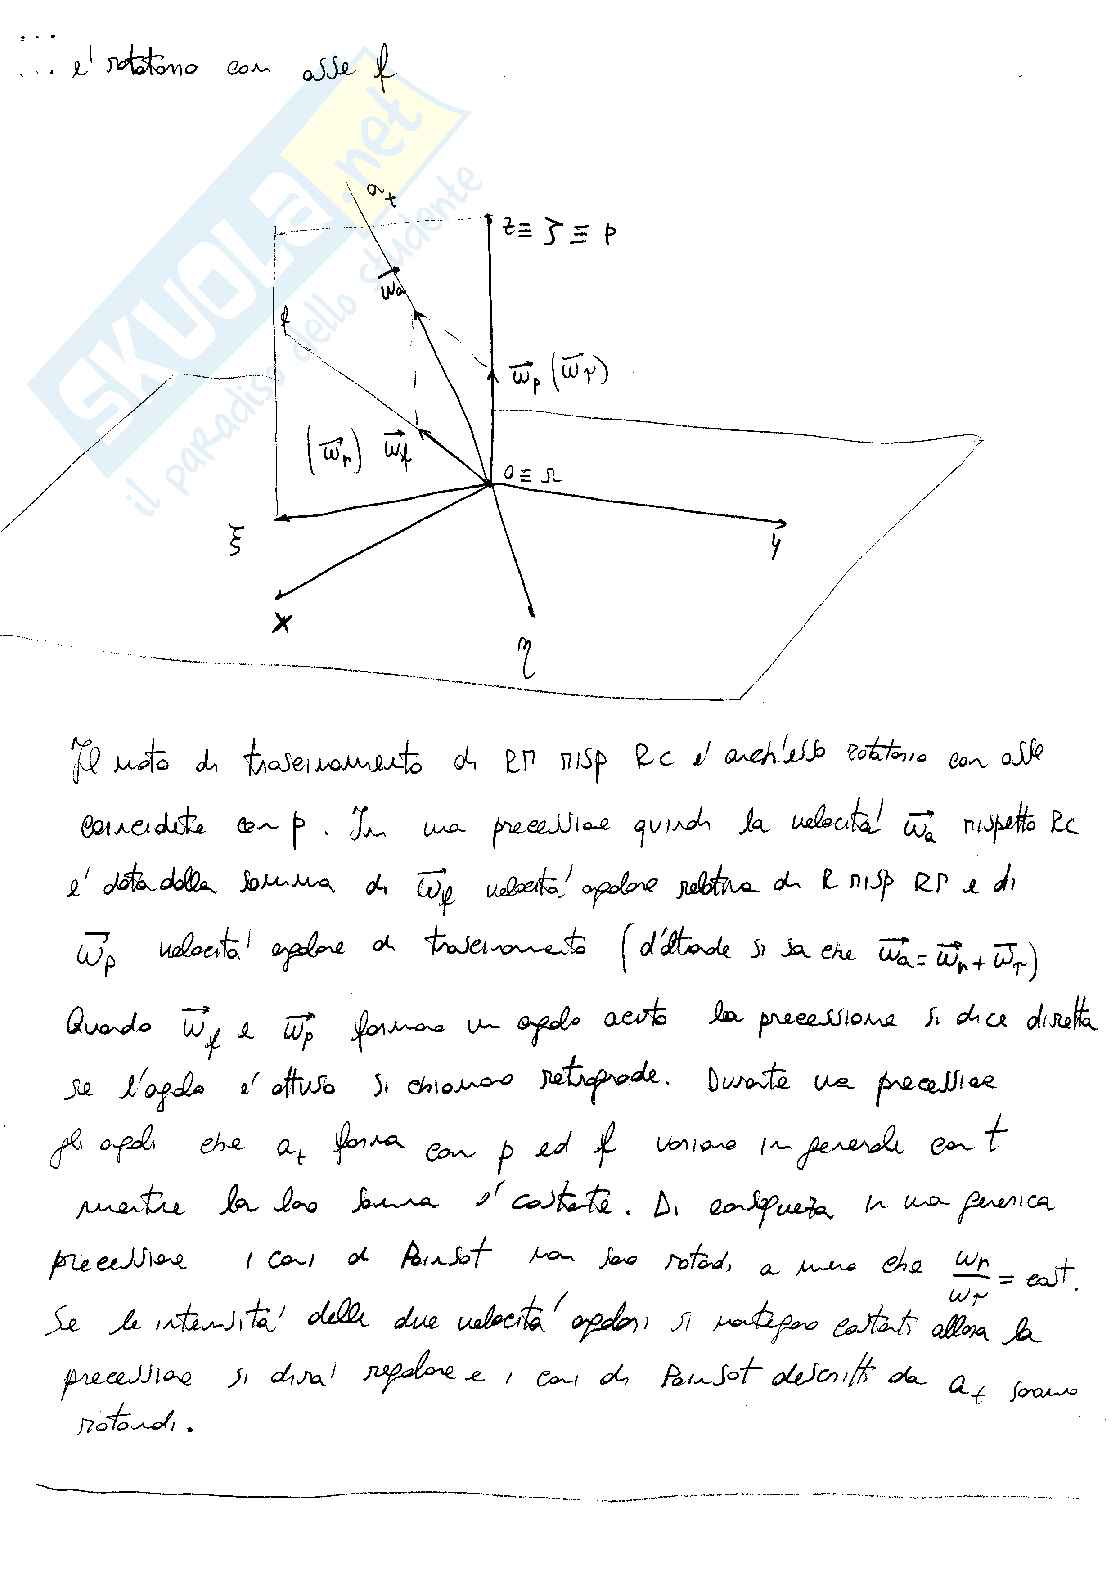 ...
... e' rotatorio con asse f
a_t
z ≡ ζ ≡ p
ω⃗a
f
ω⃗p (ω⃗τ)
(ω⃗r) ω⃗f
O ≡ Ω
ξ
y
x
η
Il moto di trascinamento di RM risp RC e' anch'esso rotatorio con asse
coincidete con p. In una precessione quindi la velocità ω⃗a rispetto RC
e' data dalla somma di ω⃗f velocità angolare relativa di R risp RM e di
ω⃗p velocità angolare di trascinamento (d'altronde si sa che ω⃗a = ω⃗r + ω⃗τ)
Quando ω⃗f e ω⃗p formano un angolo acuto la precessione si dice diretta
se l'angolo e' ottuso si chiamano retrograde. Durante una precessione
gli angoli che a_t forma con p ed f variano in generale con t
mentre la loro somma e' costante. Di conseguenza in una generica
precessione i coni di Poinsot non sono rotondi a meno che ωr/ωτ = cost.
Se le intensità delle due velocità angolari si mantengono costanti allora la
precessione si dirà regolare e i coni di Poinsot descritti da a_t saranno
rotondi.
SKUOLA.net
il paradiso dello studente